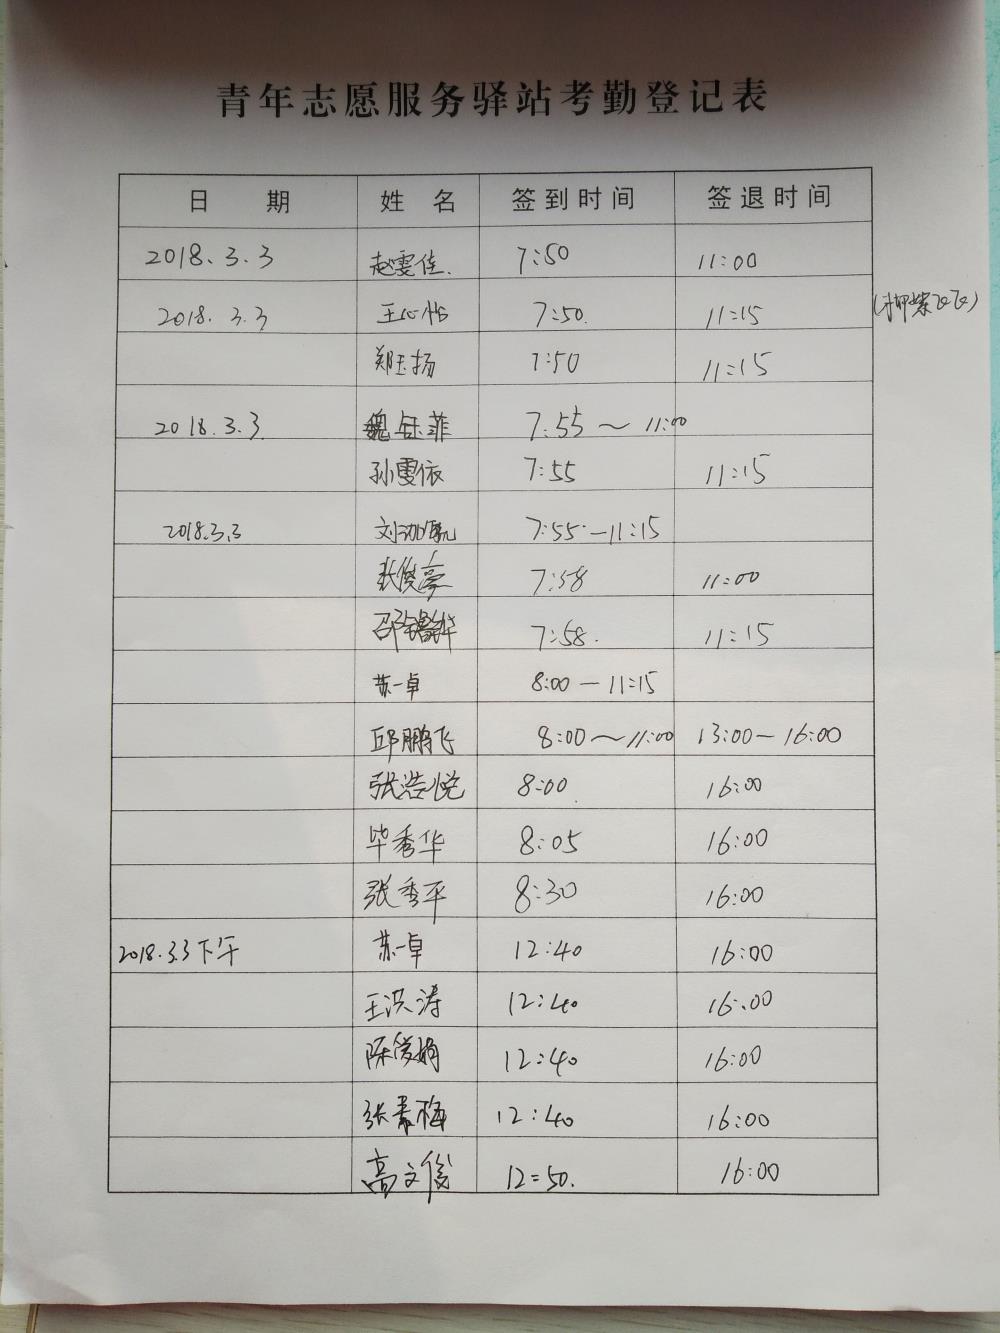 青年志愿服务驿站考勤登记表
日 期 姓 名 签到时间 签退时间
2018.3.3 赵雯佳. 7:50 11:00
2018.3.3 王心怡 7:50. 11:15
郑玉扬 7:50 11:15
2018.3.3 魏钰菲 7:55～11:00
孙雯依 7:55 11:15
2018.3.3 7:55-11:15
张俊豪 7:58 11:00
7:58. 11:15
苏一卓 8:00-11:15
邱鹏飞 8:00～11:00 13:00-16:00
张浩悦 8:00 16:00
毕秀华 8:05 16:00
张秀平 8:30 16:00
2018.3.3下午 苏一卓 12:40 16:00
王洪涛 12:40 16:00
陈俊娟 12:40 16:00
12:40 16:00
高文俊 12:50. 16:00